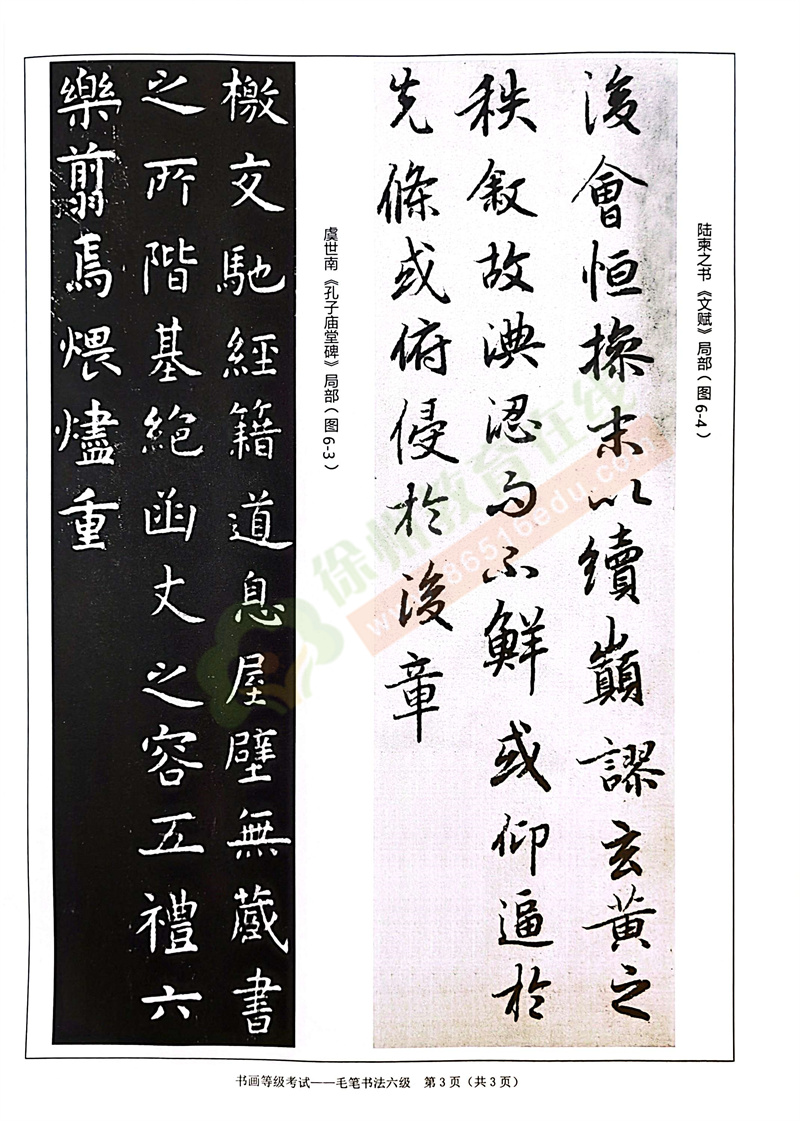 陆柬之书《文赋》局部（图6-4）
後會恒操末以續巔謬玄黃之
秩敘故淟涊而不鮮或仰逼於
先條或俯侵於後章
虞世南《孔子庙堂碑》局部（图6-3）
檄文馳經籍道息屋壁無藏書
之所階基絶函丈之容五禮六
樂翦焉煨燼重
徐州教育在线
www.86516edu.com
书画等级考试——毛笔书法六级 第3页（共3页）